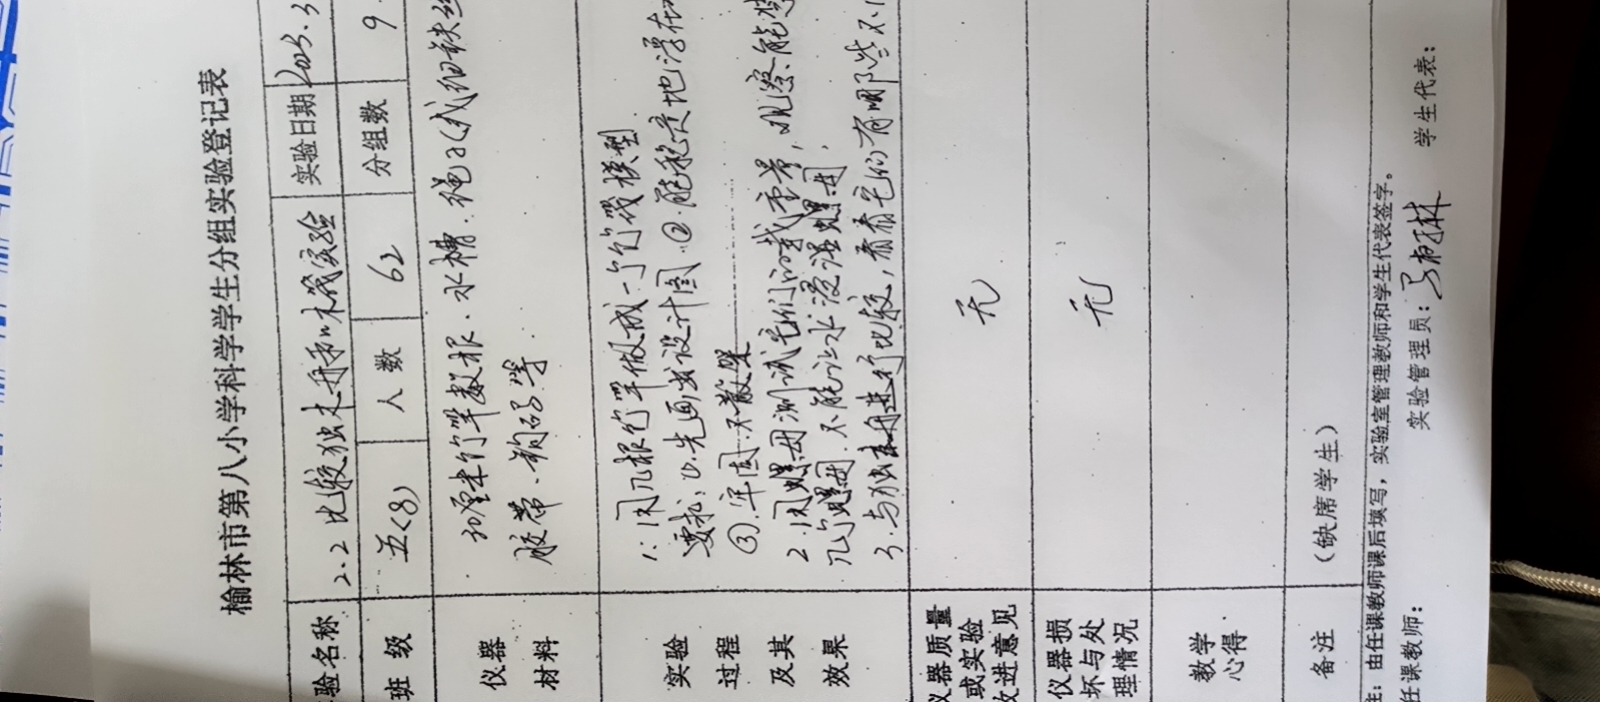 榆林市第八小学科学学生分组实验登记表
验名称 2.2比较独木舟和木筏实验 实验日期 2025.3
班 级 五(8) 人 数 62 分组数 9
仪器
材料
30厘米竹竿数根、水槽、绳子(或细铁丝
胶带、钩码等
实验
过程
及其
效果
1.用几根竹竿做成一个竹筏模型
要求:①.先画出设计图 ②.能稳定地浮在
③.牢固.不散架
2.用螺母测试它们的载重量,观察能
几个螺母.不能让水浸湿螺母.
3.与独木舟进行比较,看看它们有哪些不
仪器质量
或实验
改进意见
无
仪器损
坏与处
理情况
无
教学
心得
备注
(缺席学生)
注:由任课教师课后填写,实验室管理教师和学生代表签字。
任课教师: 实验管理员: 学生代表: